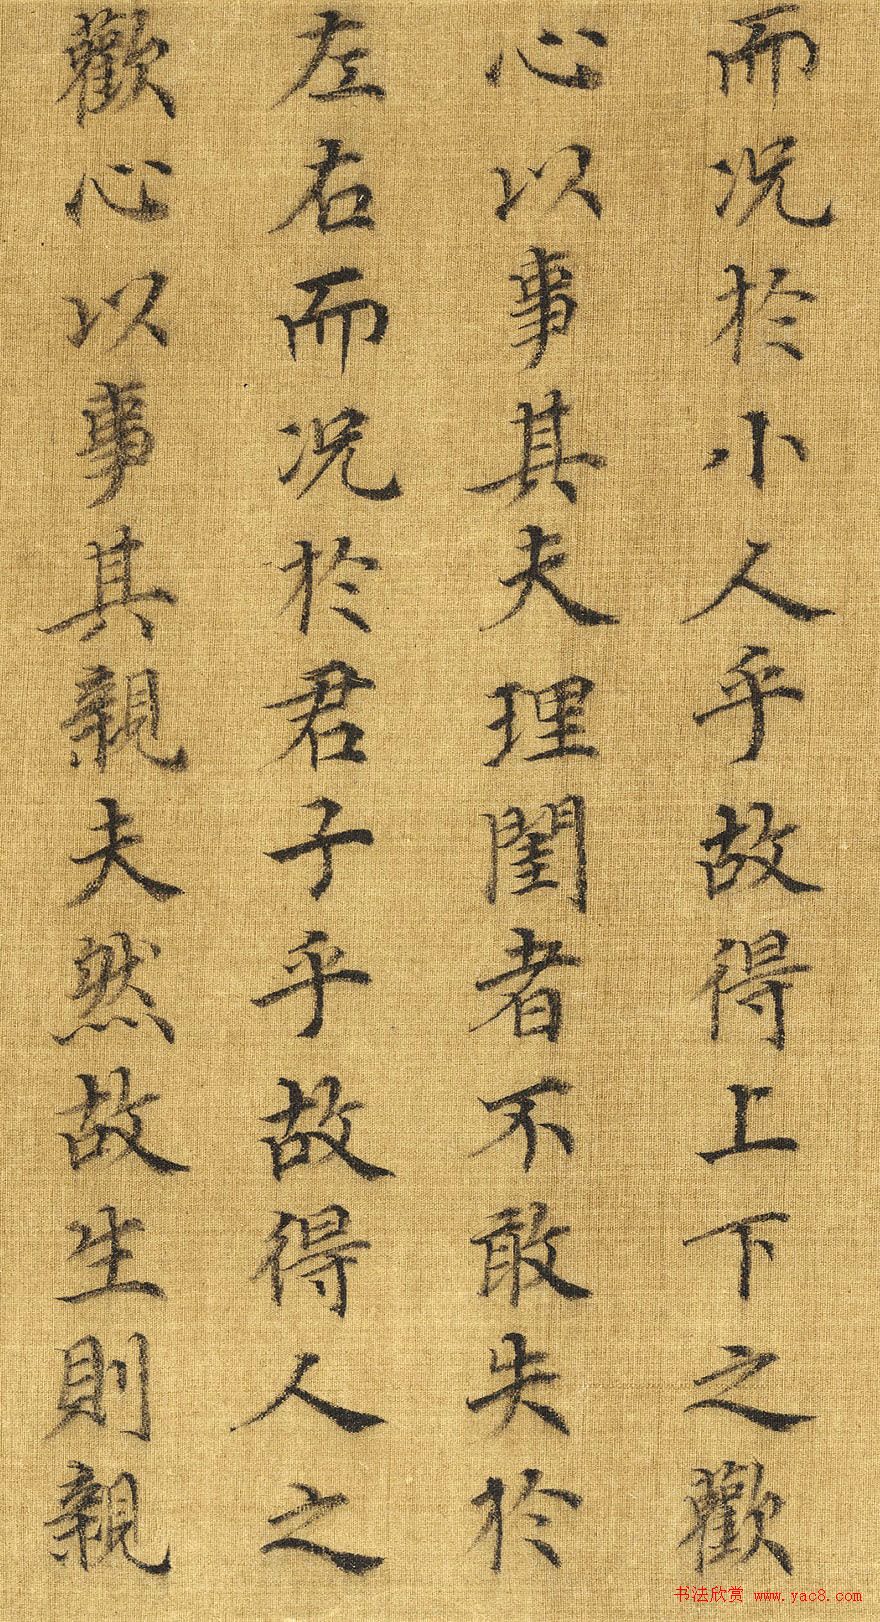 而况於小人乎故得上下之歡
心以事其夫理閨者不敢失於
左右而况於君子乎故得人之
歡心以事其親夫然故生則親
书法欣赏 www.yac8.com